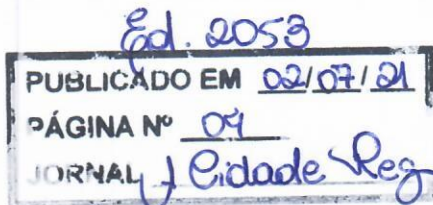 Ed. 2053
PUBLICADO EM 02/07/21
PÁGINA Nº 04
JORNAL Cidade Reg